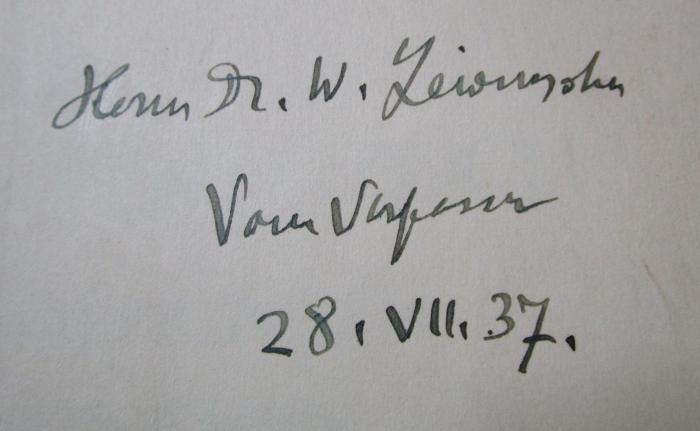 Herrn Dr. W.
Vom Verfasser
28. VII. 37.